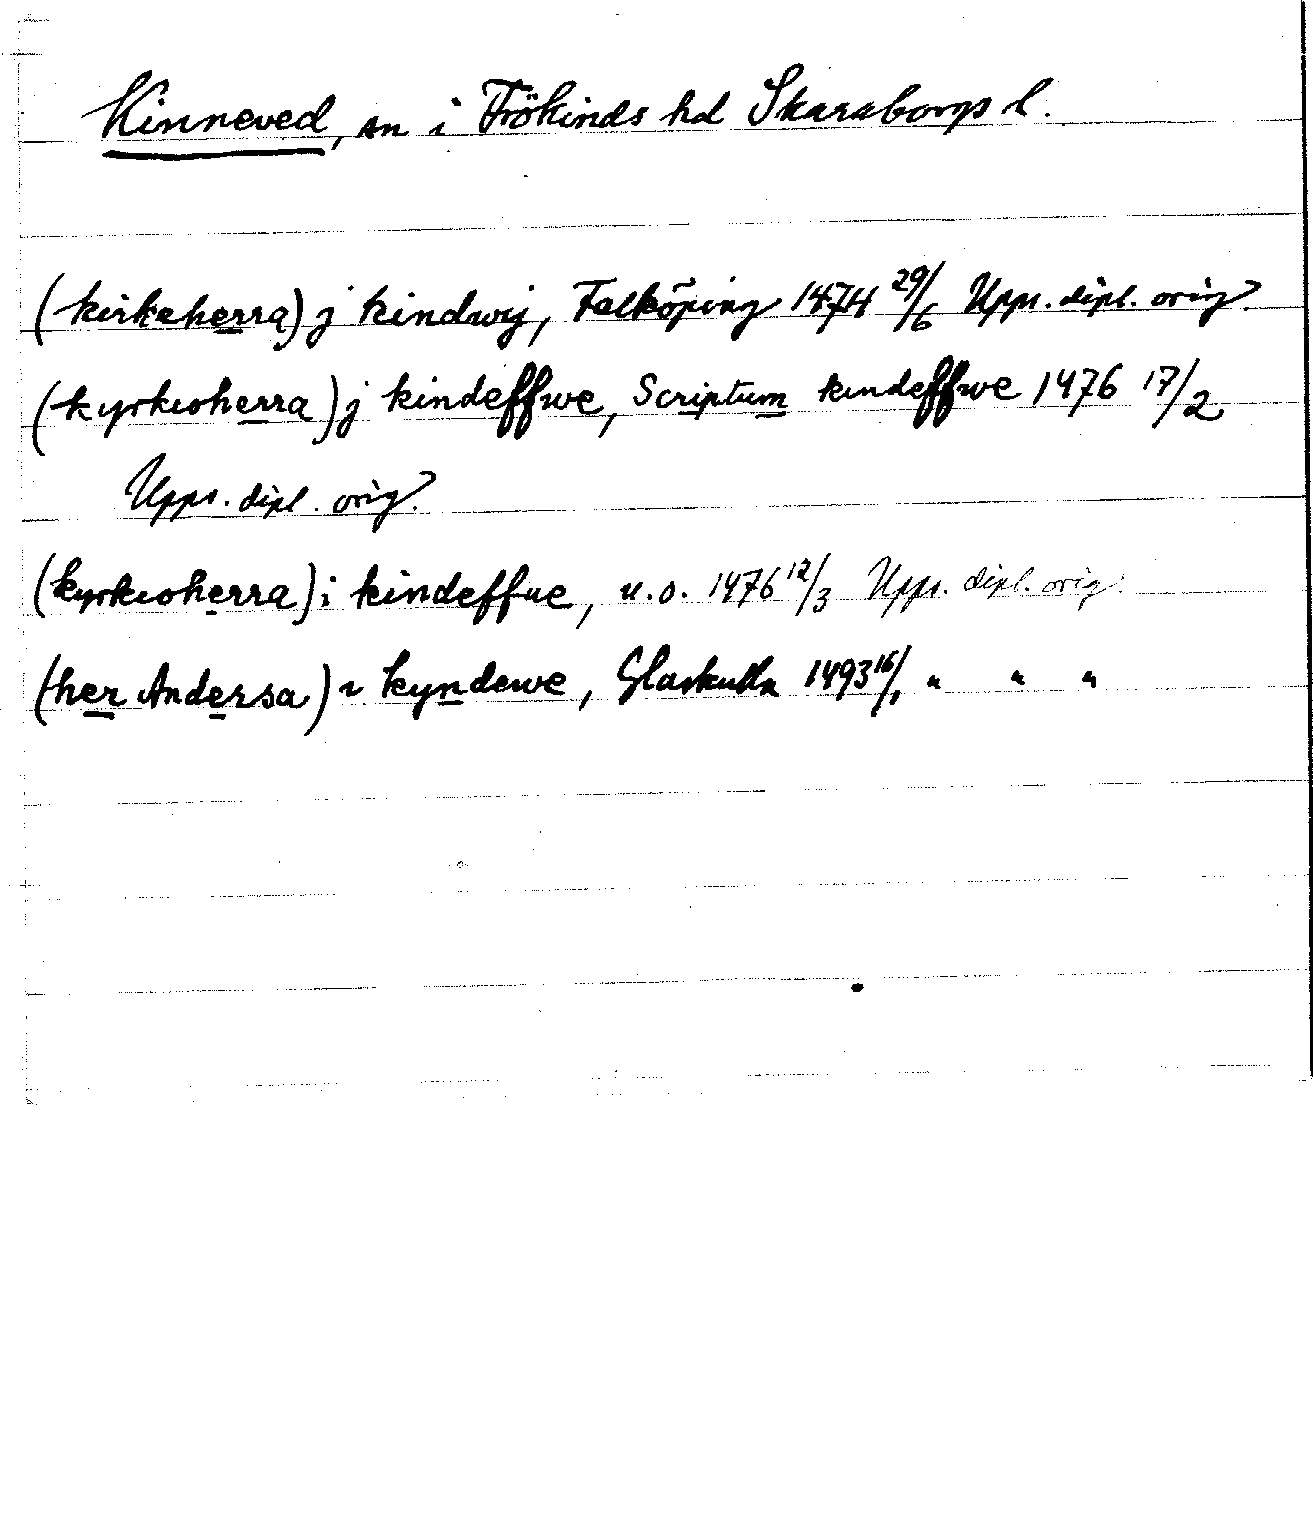 Kinneved, sn i Frökinds hd Skaraborgs l.
(kirkeherra) j kindwij, Falköping 1474 29/6 Upps. dipl. orig.
(kyrkioherra) j kindeffwe, Scriptum kindeffwe 1476 17/2
Upps. dipl. orig.
(kyrkioherra) i kindeffue, u.o. 1476 12/3 Upps. dipl. orig.
(her Andersa) i kyndewe, 1493 16/1 " " "